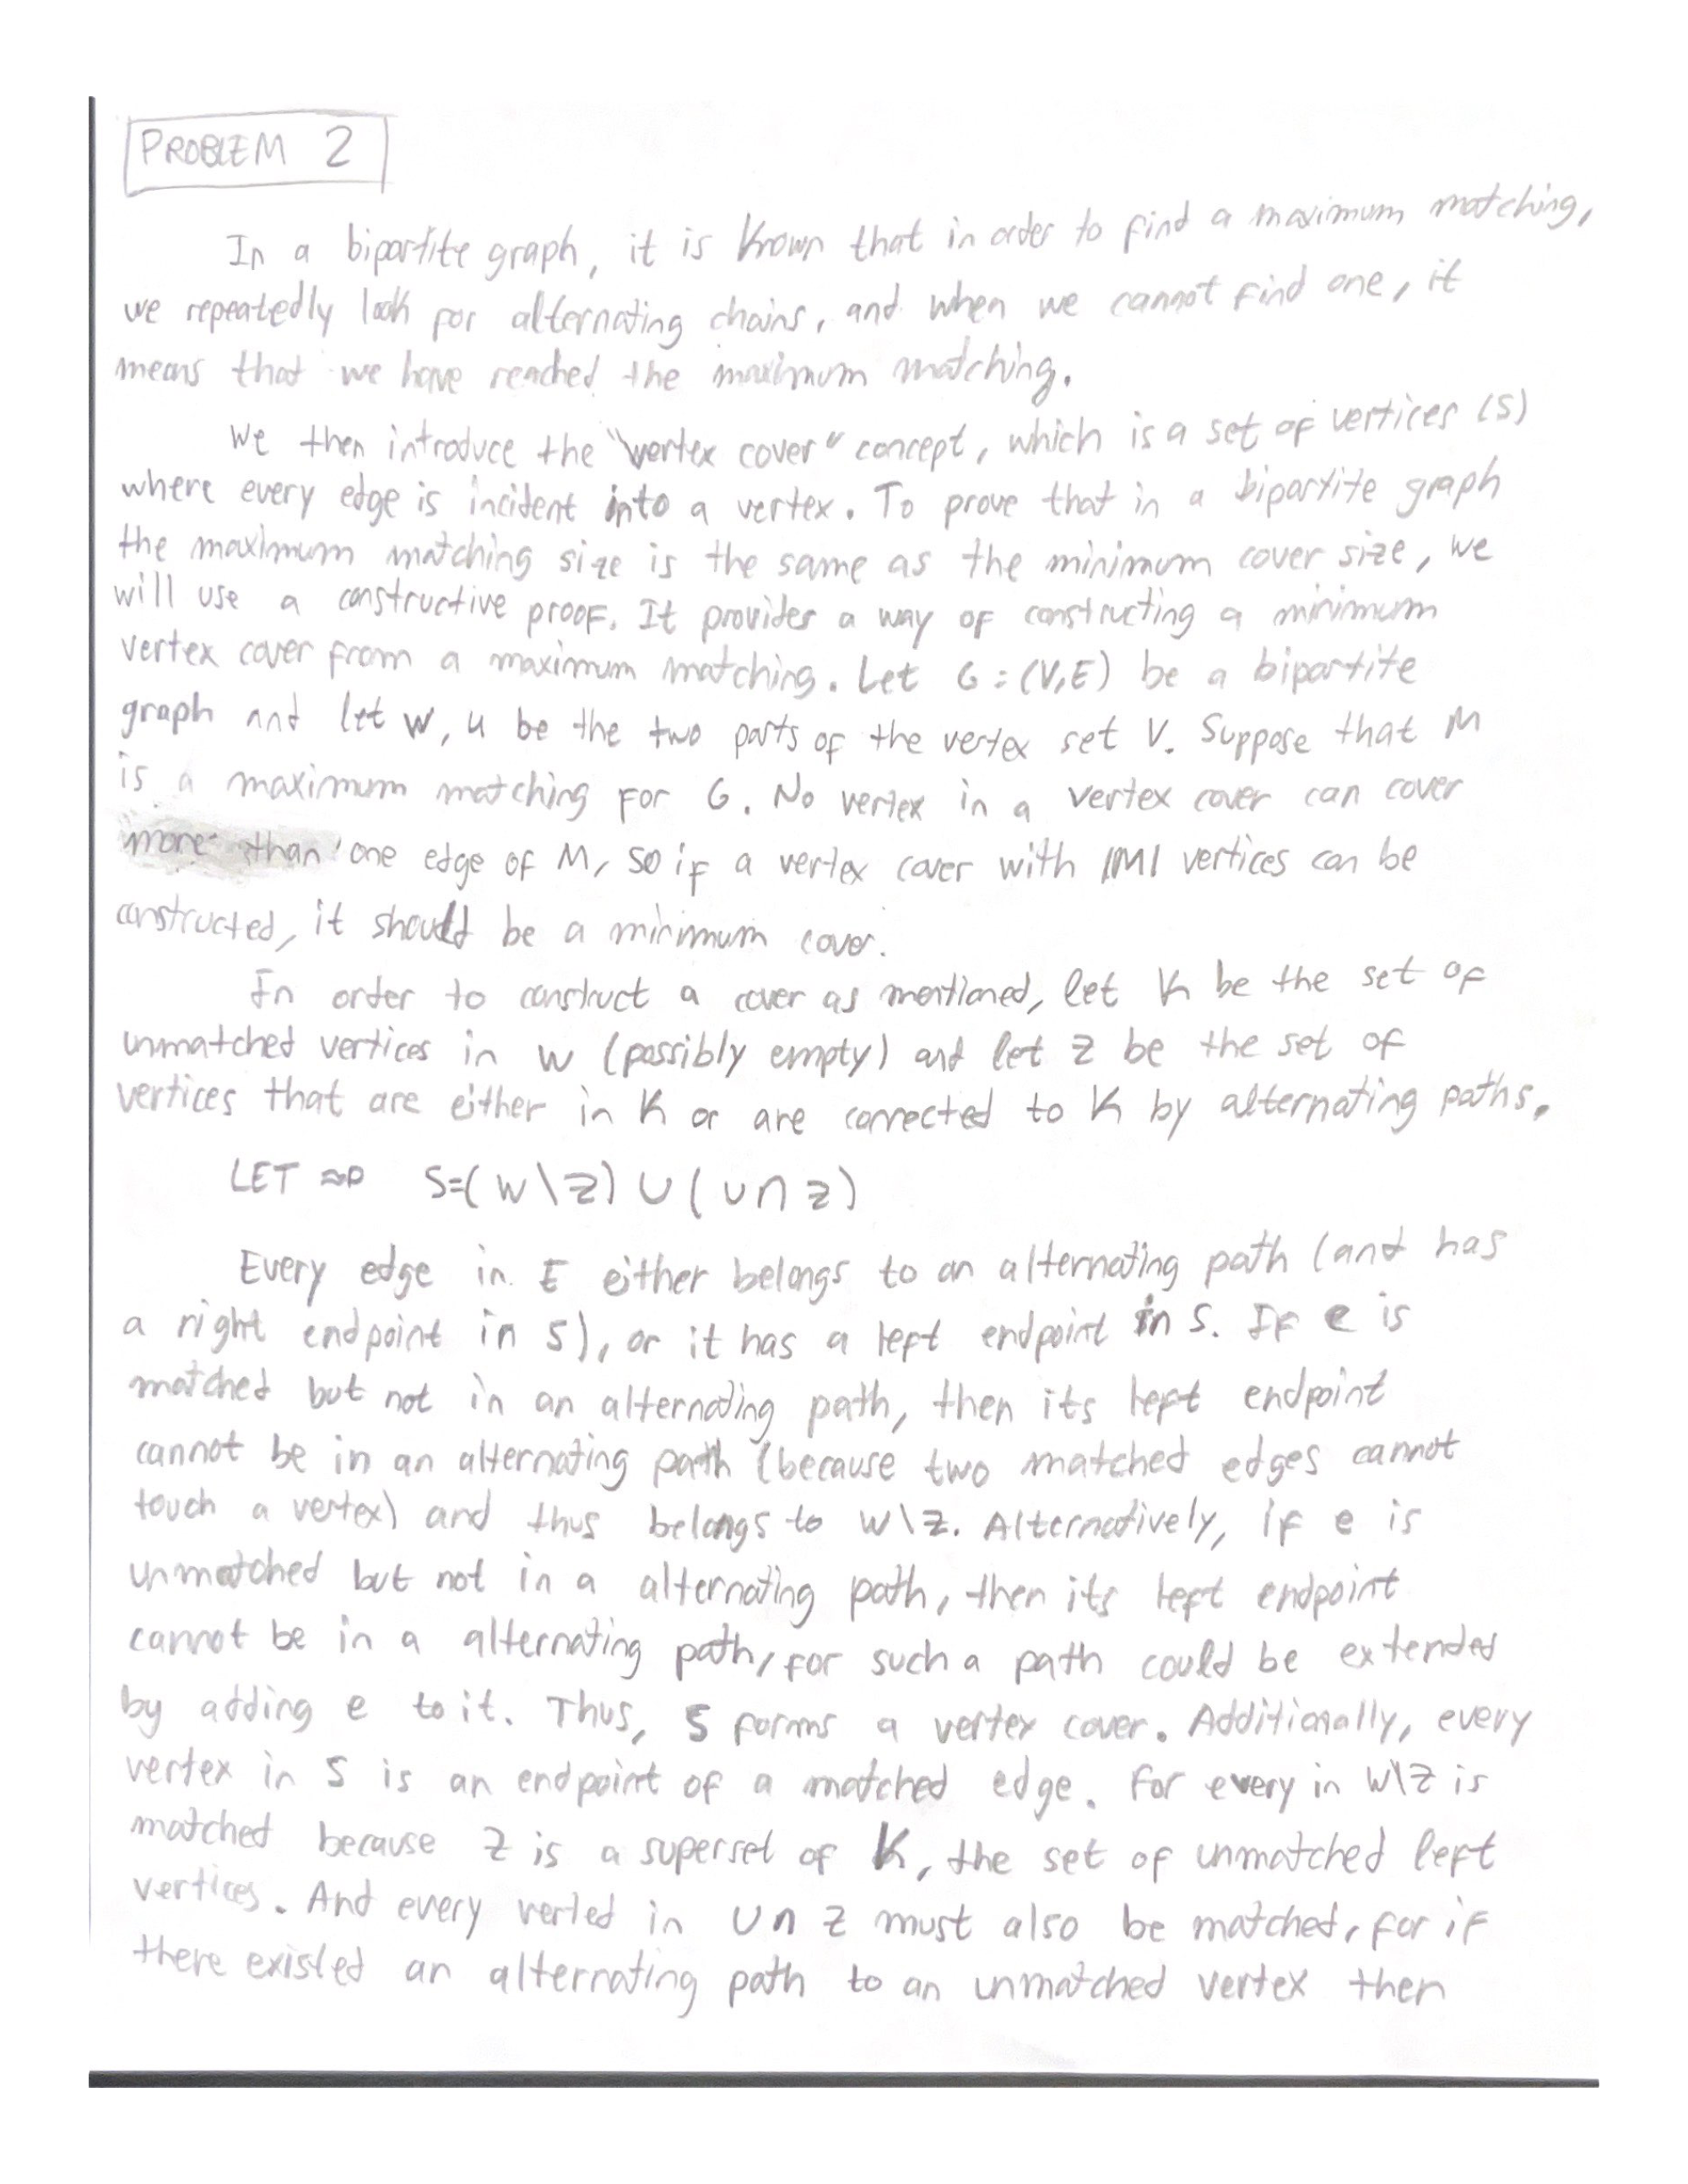 PROBLEM 2
In a bipartite graph, it is known that in order to find a maximum matching,
we repeatedly look for alternating chains, and when we cannot find one, it
means that we have reached the maximum matching.
We then introduce the "vertex cover" concept, which is a set of vertices (S)
where every edge is incident into a vertex. To prove that in a bipartite graph
the maximum matching size is the same as the minimum cover size, we
will use a constructive proof. It provides a way of constructing a minimum
vertex cover from a maximum matching. Let G = (V,E) be a bipartite
graph and let w, u be the two parts of the vertex set V. Suppose that M
is a maximum matching for G. No vertex in a vertex cover can cover
more than one edge of M, so if a vertex cover with |M| vertices can be
constructed, it should be a minimum cover.
In order to construct a cover as mentioned, let K be the set of
unmatched vertices in w (possibly empty) and let Z be the set of
vertices that are either in K or are connected to K by alternating paths.
LET S=(W\Z) ∪ (U∩Z)
Every edge in E either belongs to an alternating path (and has
a right endpoint in S), or it has a left endpoint in S. If e is
matched but not in an alternating path, then its left endpoint
cannot be in an alternating path (because two matched edges cannot
touch a vertex) and thus belongs to W\Z. Alternatively, if e is
unmatched but not in a alternating path, then its left endpoint
cannot be in a alternating path, for such a path could be extended
by adding e to it. Thus, S forms a vertex cover. Additionally, every
vertex in S is an endpoint of a matched edge. For every in W\Z is
matched because Z is a superset of K, the set of unmatched left
vertices. And every verted in U∩Z must also be matched, for if
there existed an alternating path to an unmatched vertex then